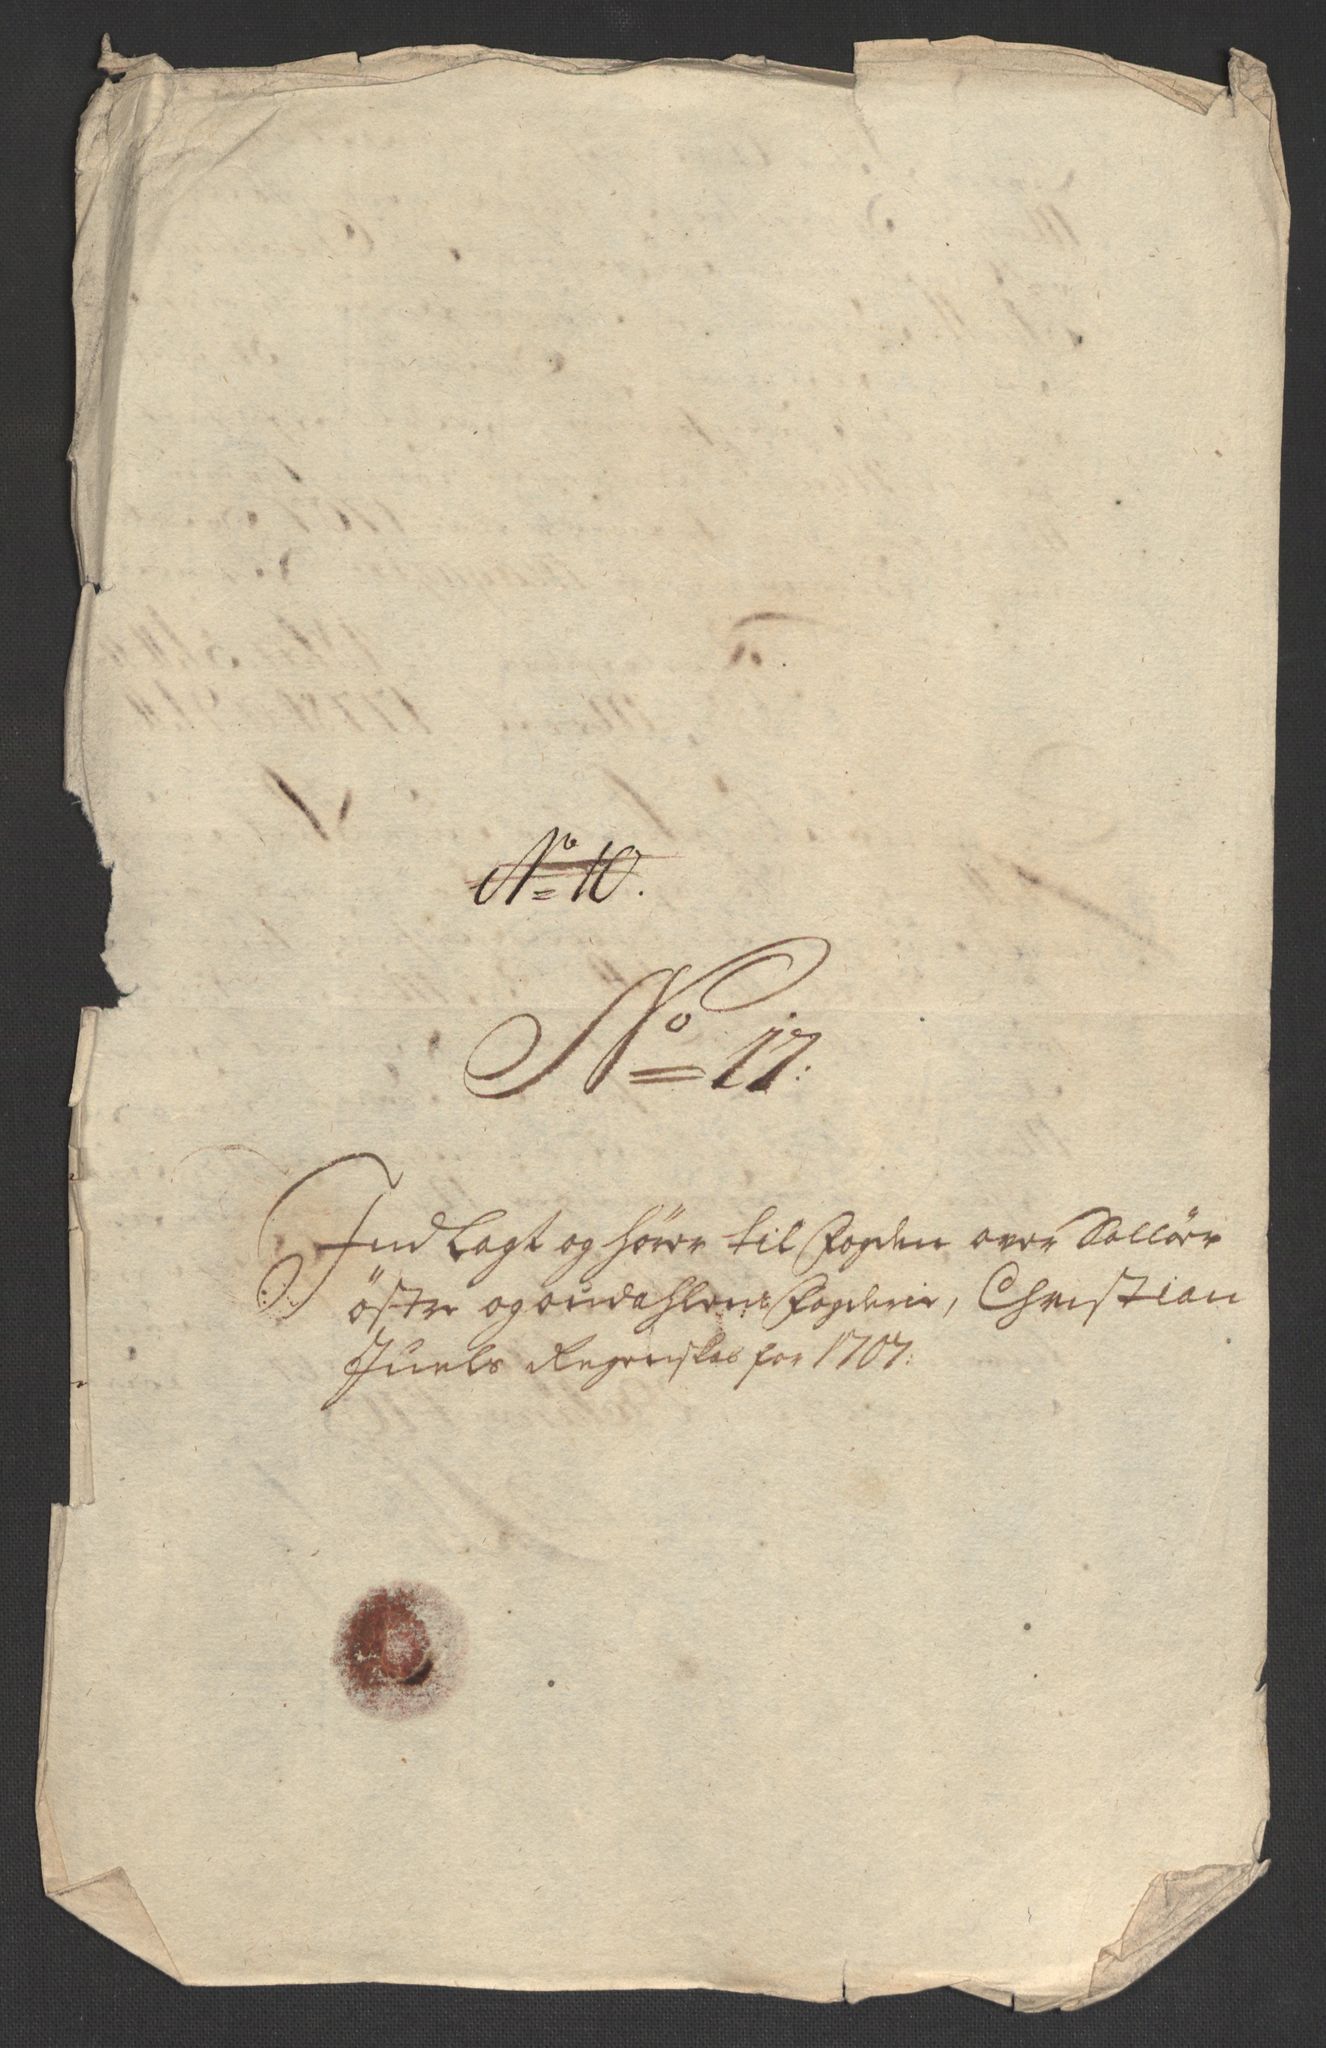 No 10.
No 17:
Ind lagt og hörer til Fogden over Sollöer
öster og oudahlens Fogderie, Christian
Juels Regenskab for 1707: